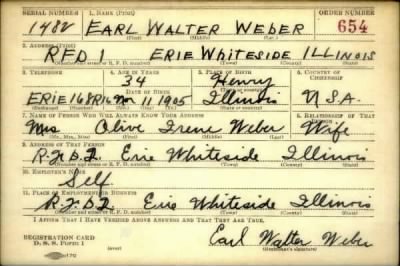 SERIAL NUMBER 1. NAME (Print) ORDER NUMBER
1482 EARL WALTER WEBER 654
(First) (Middle) (Last)
2. ADDRESS (Print)
RFD 1 ERIE WHITESIDE ILLINOIS
(Number and street or R. F. D. number) (Town) (County) (State)
3. TELEPHONE 4. AGE IN YEARS 5. PLACE OF BIRTH 6. COUNTRY OF
CITIZENSHIP
34 Henry
DATE OF BIRTH (Town or county)
ERIE 168R16 Nov 11 1905 Illinois U.S.A.
(Exchange) (Number) (Mo.) (Day) (Yr.) (State or country)
7. NAME OF PERSON WHO WILL ALWAYS KNOW YOUR ADDRESS 8. RELATIONSHIP OF THAT
PERSON
Mrs. Olive Irene Weber Wife
(Mr., Mrs., Miss) (First) (Middle) (Last)
9. ADDRESS OF THAT PERSON
Erie Whiteside Illinois
(Number and street or R. F. D. number) (Town) (County) (State)
10. EMPLOYER'S NAME
Self
11. PLACE OF EMPLOYMENT OR BUSINESS
Erie Whiteside Illinois
(Number and street or R. F. D. number) (Town) (County) (State)
I AFFIRM THAT I HAVE VERIFIED ABOVE ANSWERS AND THAT THEY ARE TRUE.
REGISTRATION CARD
D. S. S. FORM 1
Earl Walter Weber
(Registrant's signature)